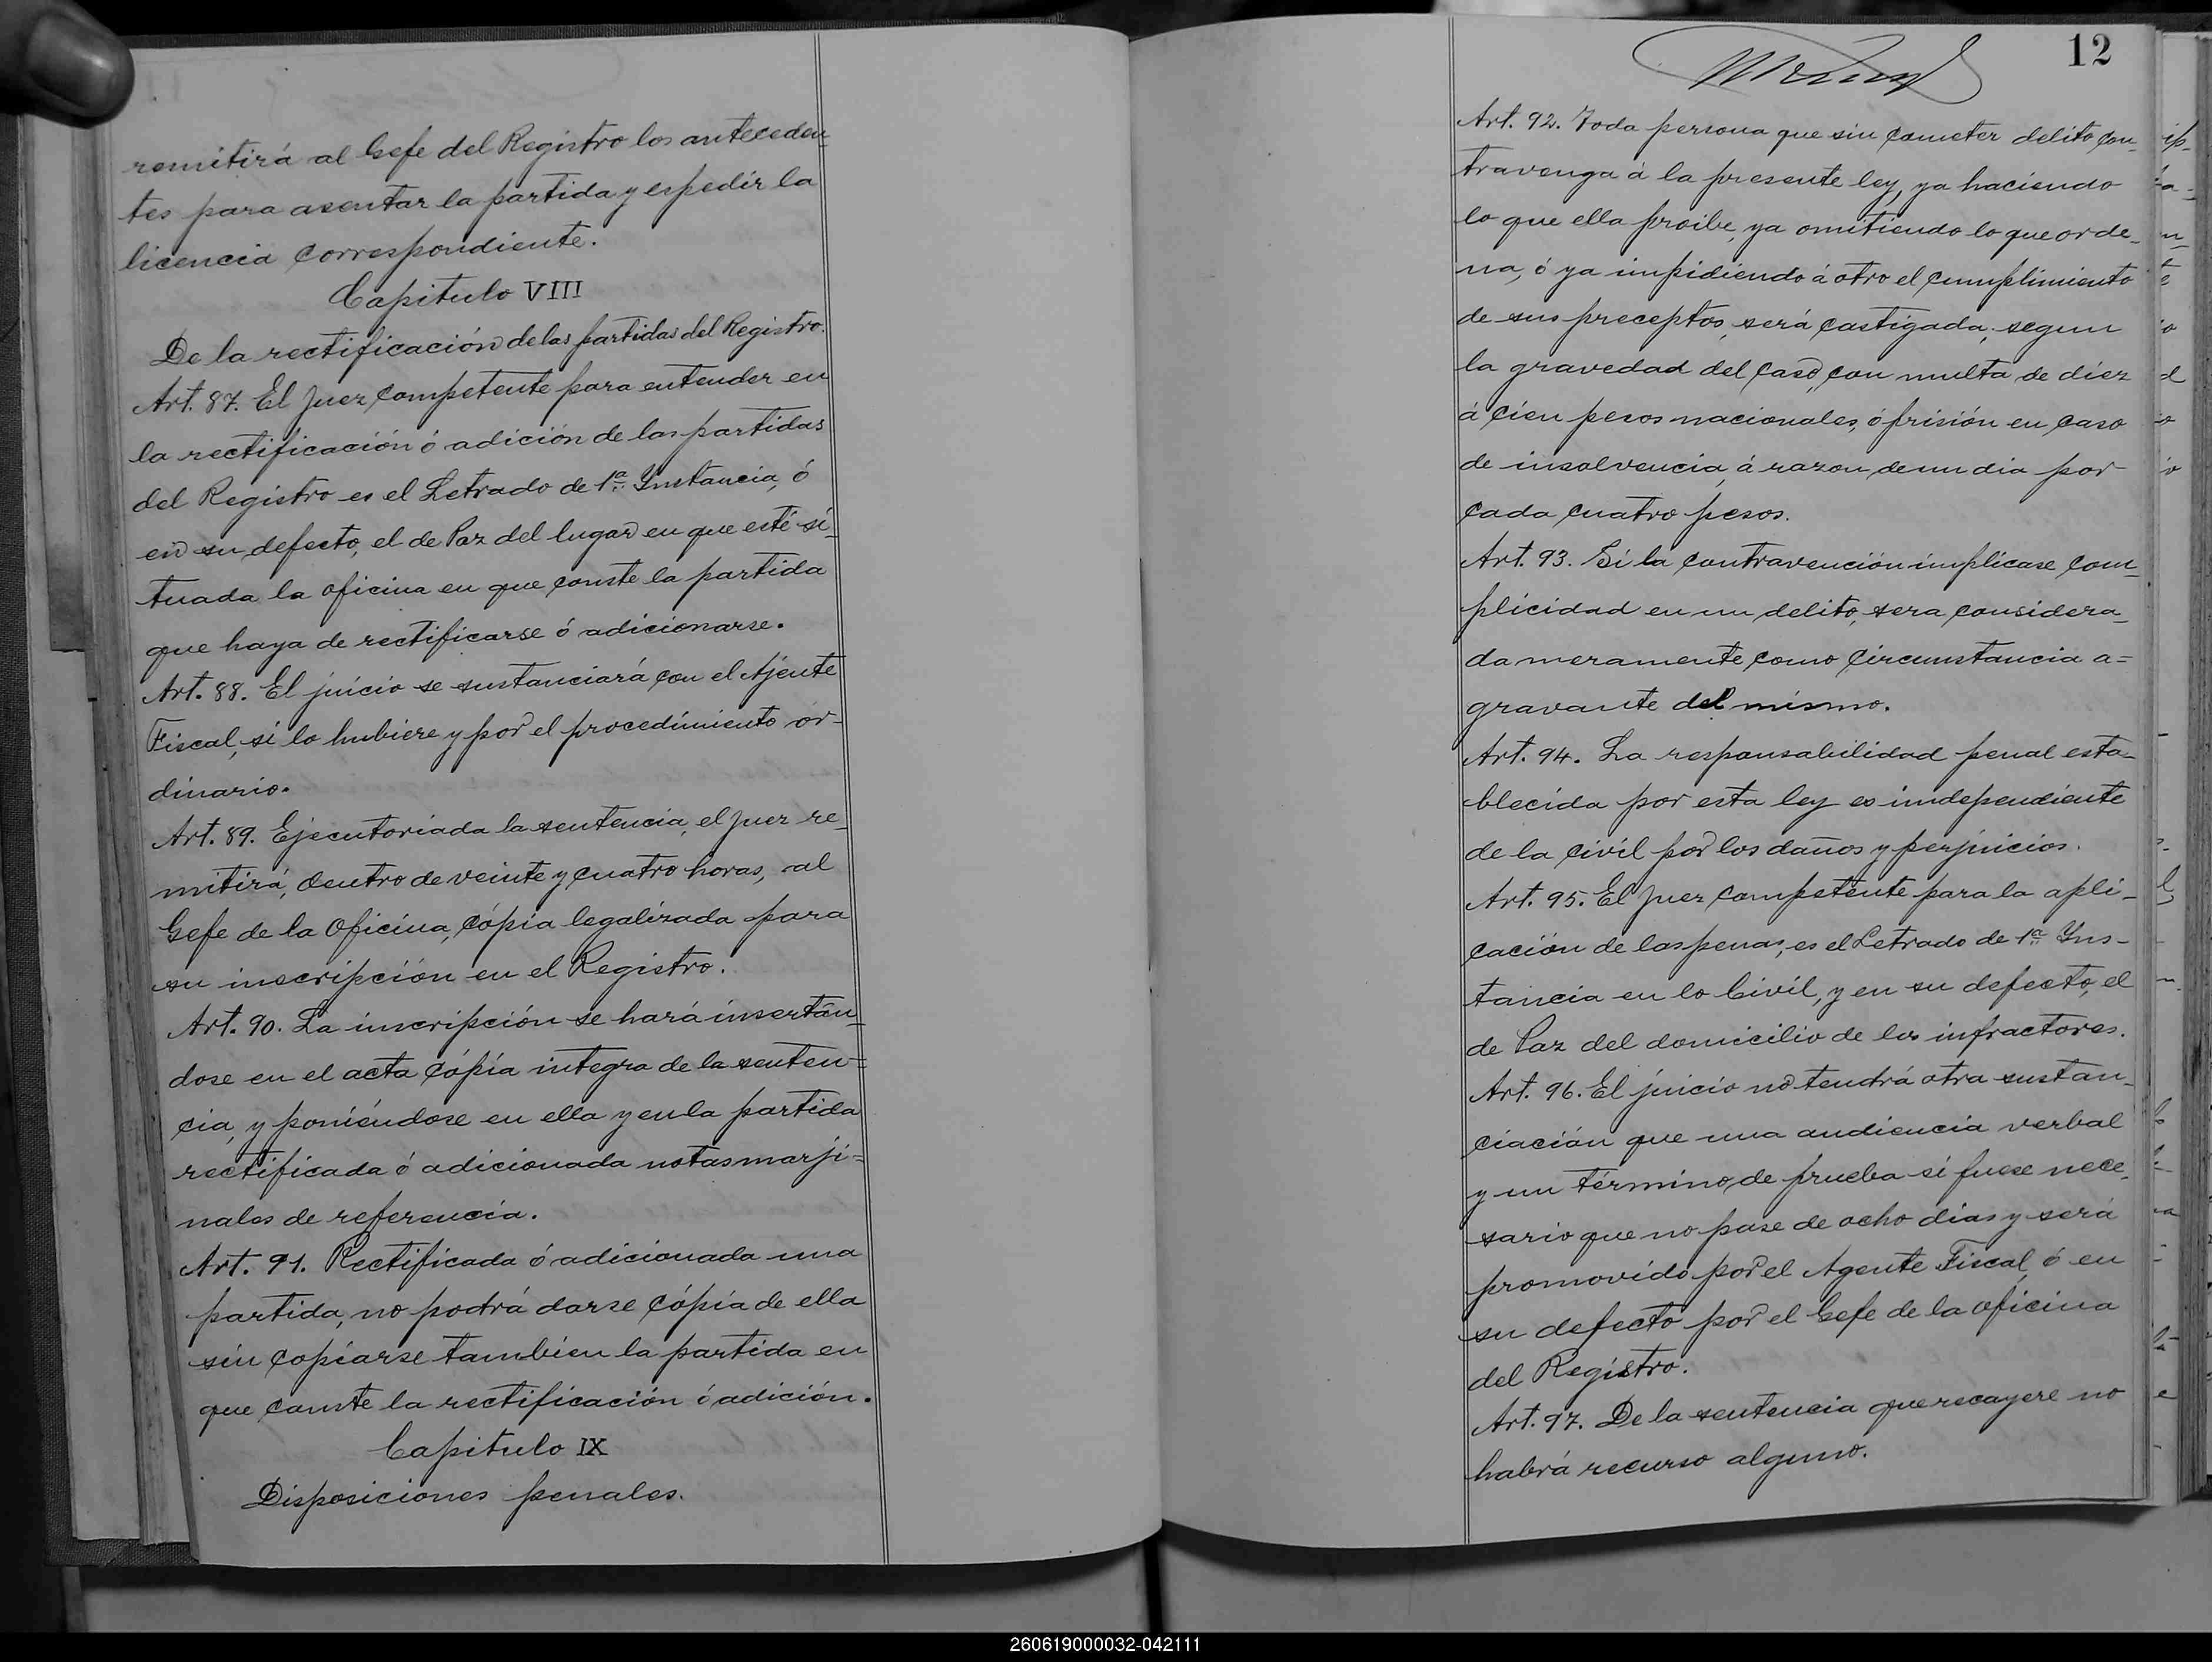 remitirá al Gefe del Registro los anteceden_
tes para asentar la partida y espedir la
licencia correspondiente.
Capitulo VIII
De la rectificación de las partidas del Registro.
Art. 87. El Juez competente para entender en
la rectificación ó adición de las partidas
del Registro es el Letrado de 1ª Instancia, ó
en su defecto, el de Paz del lugar en que esté si_
tuada la oficina en que conste la partida
que haya de rectificarse ó adicionarse.
Art. 88. El juicio se sustanciará con el Ajente
Fiscal, si lo hubiere y por el procedimiento or-
dinario.
Art. 89. Ejecutoriada la sentencia, el Juez re_
mitirá, dentro de veinte y cuatro horas, al
Gefe de la Oficina, cópia legalizada para
su inscripción en el Registro.
Art. 90. La inscripción se hará insertán_
dose en el acta cópia integra de la senten=
cia, y poniéndose en ella y en la partida
rectificada ó adicionada notas marji=
nales de referencia.
Art. 91. Rectificada ó adicionada una
partida, no podrá darse cópia de ella
sin copiarse tambien la partida en
que conste la rectificación ó adición.
Capitulo IX
Disposiciones penales.
12
Art. 92. Toda persona que sin cometer delito con_
travenga á la presente ley, ya haciendo
lo que ella proibe, ya omitiendo lo que orde_
na, ó ya impidiendo á otro el cumplimiento
de sus preceptos, será castigada, segun
la gravedad del caso, con multa de diez
á cien pesos nacionales, ó prisión en caso
de insolvencia, á razon de un dia por
cada cuatro pesos.
Art. 93. Si la contravención implicase com_
plicidad en un delito, sera considera_
da meramente como circunstancia a=
gravante del mismo.
Art. 94. La responsabilidad penal esta-
blecida por esta ley es independiente
de la civil por los daños y perjuicios.
Art. 95. El Juez competente para la apli-
cación de las penas, es el Letrado de 1ª Ins-
tancia en lo Civil, y en su defecto, el
de Paz del domicilio de los infractores.
Art. 96. El juicio no tendrá otra sustan_
ciación que una audiencia verbal
y un término de prueba si fuese nece_
sario que no pase de ocho dias y será
promovido por el Agente Fiscal, ó en
su defecto por el Gefe de la oficina
del Registro.
Art. 97. De la sentencia que recayere no
habrá recurso alguno.
260619000032-042111